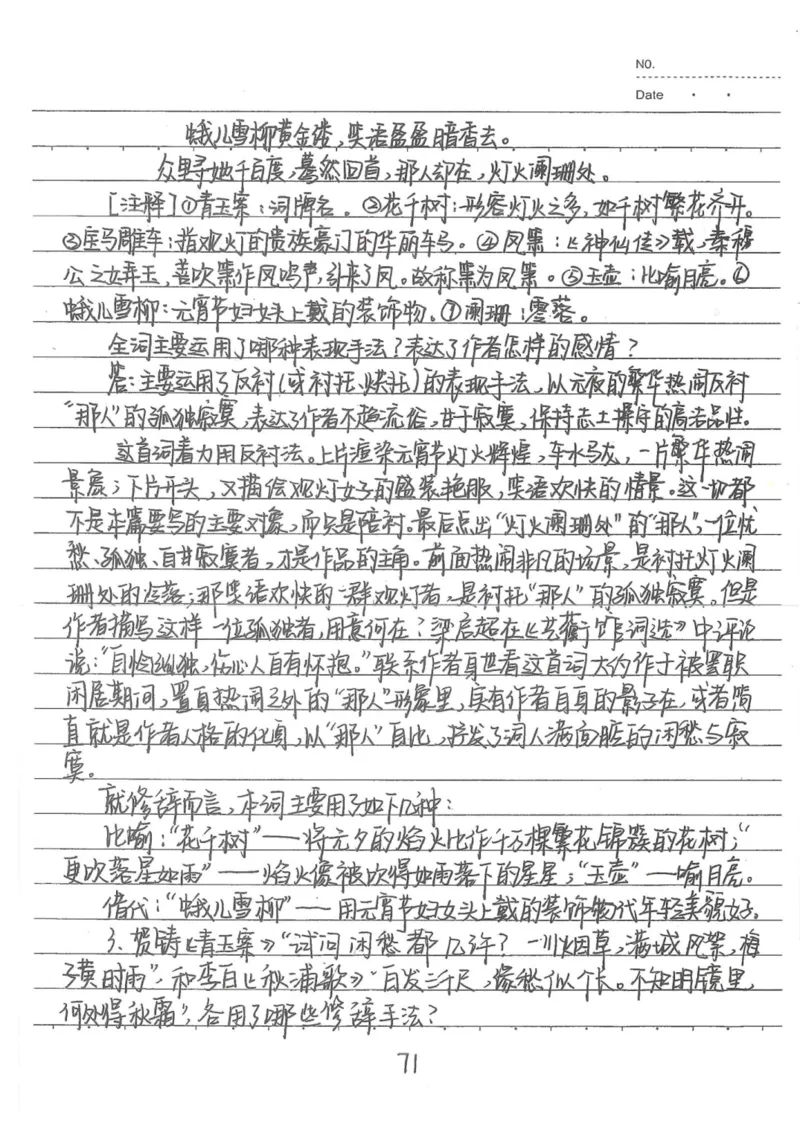 NO.
Date
蛾儿雪柳黄金缕，笑语盈盈暗香去。
众里寻她千百度，蓦然回首，那人却在，灯火阑珊处。
［注释］①青玉案：词牌名。②花千树：形容灯火之多，如千树繁花齐开。
③宝马雕车：指观灯的贵族豪门的华丽车马。④凤箫：《神仙传》载，秦穆
公之女弄玉，善吹箫作凤鸣声，引来了凤。故称箫为凤箫。⑤玉壶：比喻月亮。⑥
蛾儿雪柳：元宵节妇女头上戴的装饰物。⑦阑珊：零落。
全词主要运用了哪种表现手法？表达了作者怎样的感情？
答：主要运用了反衬（或衬托、烘托）的表现手法，以元夜的繁华热闹反衬
“那人”的孤独寂寞，表达了作者不趋流俗，甘于寂寞，保持志士操守的高洁品性。
这首词着力用反衬法。上片渲染元宵节灯火辉煌，车水马龙，一片繁华热闹
景象；下片开头，又描绘观灯女子的盛装艳服，笑语欢快的情景。这一切都
不是本篇要写的主要对象，而只是陪衬。最后点出“灯火阑珊处”的“那人”，一位忧
愁、孤独、自甘寂寞者，才是作品的主角。前面热闹非凡的场景，是衬托灯火阑
珊处的冷落；那笑语欢快的一群观灯者，是衬托“那人”的孤独寂寞。但是
作者描写这样一位孤独者，用意何在？梁启超在《艺蘅馆词选》中评论
说：“自怜幽独，伤心人自有怀抱。”联系作者身世看这首词大约作于被罢职
闲居期间，置身热闹之外的“那人”形象里，实有作者自身的影子在，或者简
直就是作者人格的化身，以“那人”自比，抒发了词人满向脏的闲愁与寂
寞。
就修辞而言，本词主要用了如下几种：
比喻：“花千树”——将元夕的焰火比作千万棵繁花锦簇的花树；“
更吹落星如雨”——焰火像被吹得如雨落下的星星；“玉壶”——喻月亮。
借代：“蛾儿雪柳”——用元宵节妇女头上戴的装饰物代年轻美貌女子。
3、贺铸《青玉案》“试问闲愁都几许？一川烟草，满城风絮，梅
子黄时雨”，和李白《秋浦歌》“白发三千尺，缘愁似个长。不知明镜里，
何处得秋霜”，各用了哪些修辞手法？
71